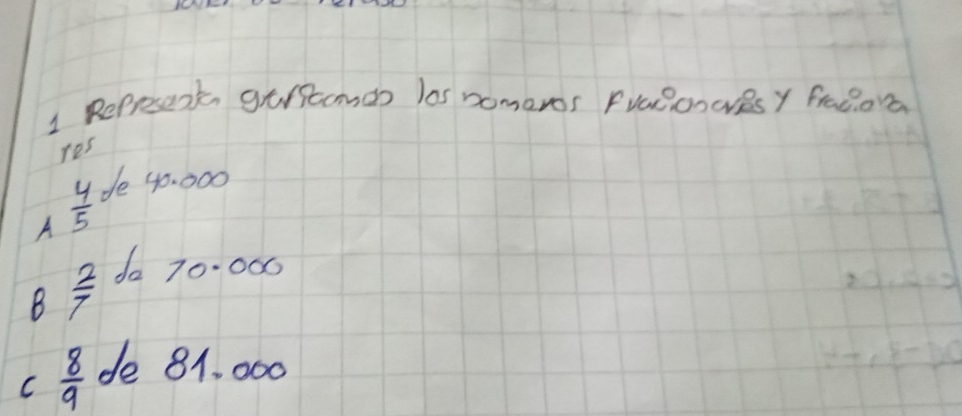 1 Represente graficando los nomeros Fracionares y fraciona
res
A 4/5 de 40.000
B 2/7 de 70.000
C 8/9 de 81.000